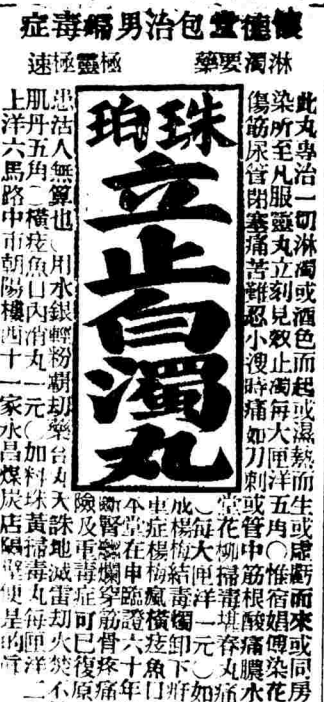 懷德堂包治男婦毒症
淋濁要藥
極靈極速
珠珀
立止白濁丸
此丸專治一切淋濁或酒色而起或濕熱而生或虛虧而來或同房
染所至凡服靈丸立刻見效止濁每大匣洋五角○惟宿娼傅染花
傷筋尿管閉塞痛苦難忍小溲時痛如刀刺或管中筋根酸痛膿水
堂花柳掃毒堪春丸痛
○每大匣洋一元○如
成楊梅結毒濁卸下疳
車症楊梅瘋橫痃魚口
本堂在申臨證六十年
斷腎爛穿筋骨疼痛
險及重毒症可已復原
患沽人無算也○用水銀輕粉霸刧藥台丸天誅地滅雷刧火焚不
肌丹五角○橫痃魚口內消丸一元○加料珠黃掃毒丸每匣洋二
上洋六馬路中市朝陽樓西四十一家水昌煤炭店隔壁便是的